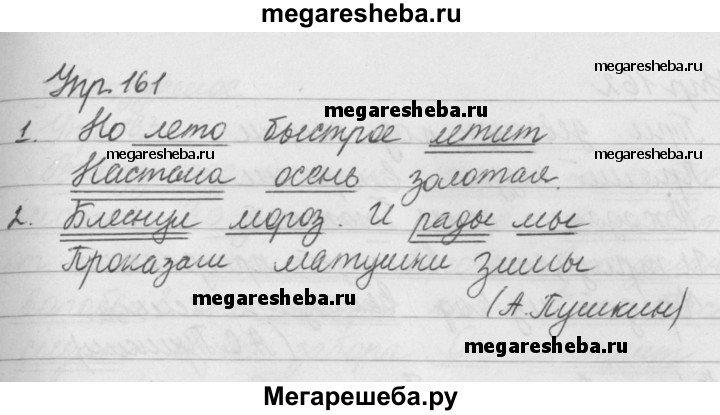 megaresheba.ru
Упр. 161
megaresheba.ru
megaresheba.ru
1. Но лето быстрое летит
megaresheba.ru
megaresheba.ru
Настала осень золотая.
2. Блеснул мороз. И рады мы
Проказам матушки зимы
megaresheba.ru
(А. Пушкин)
megaresheba.ru
Мегарешеба.ру